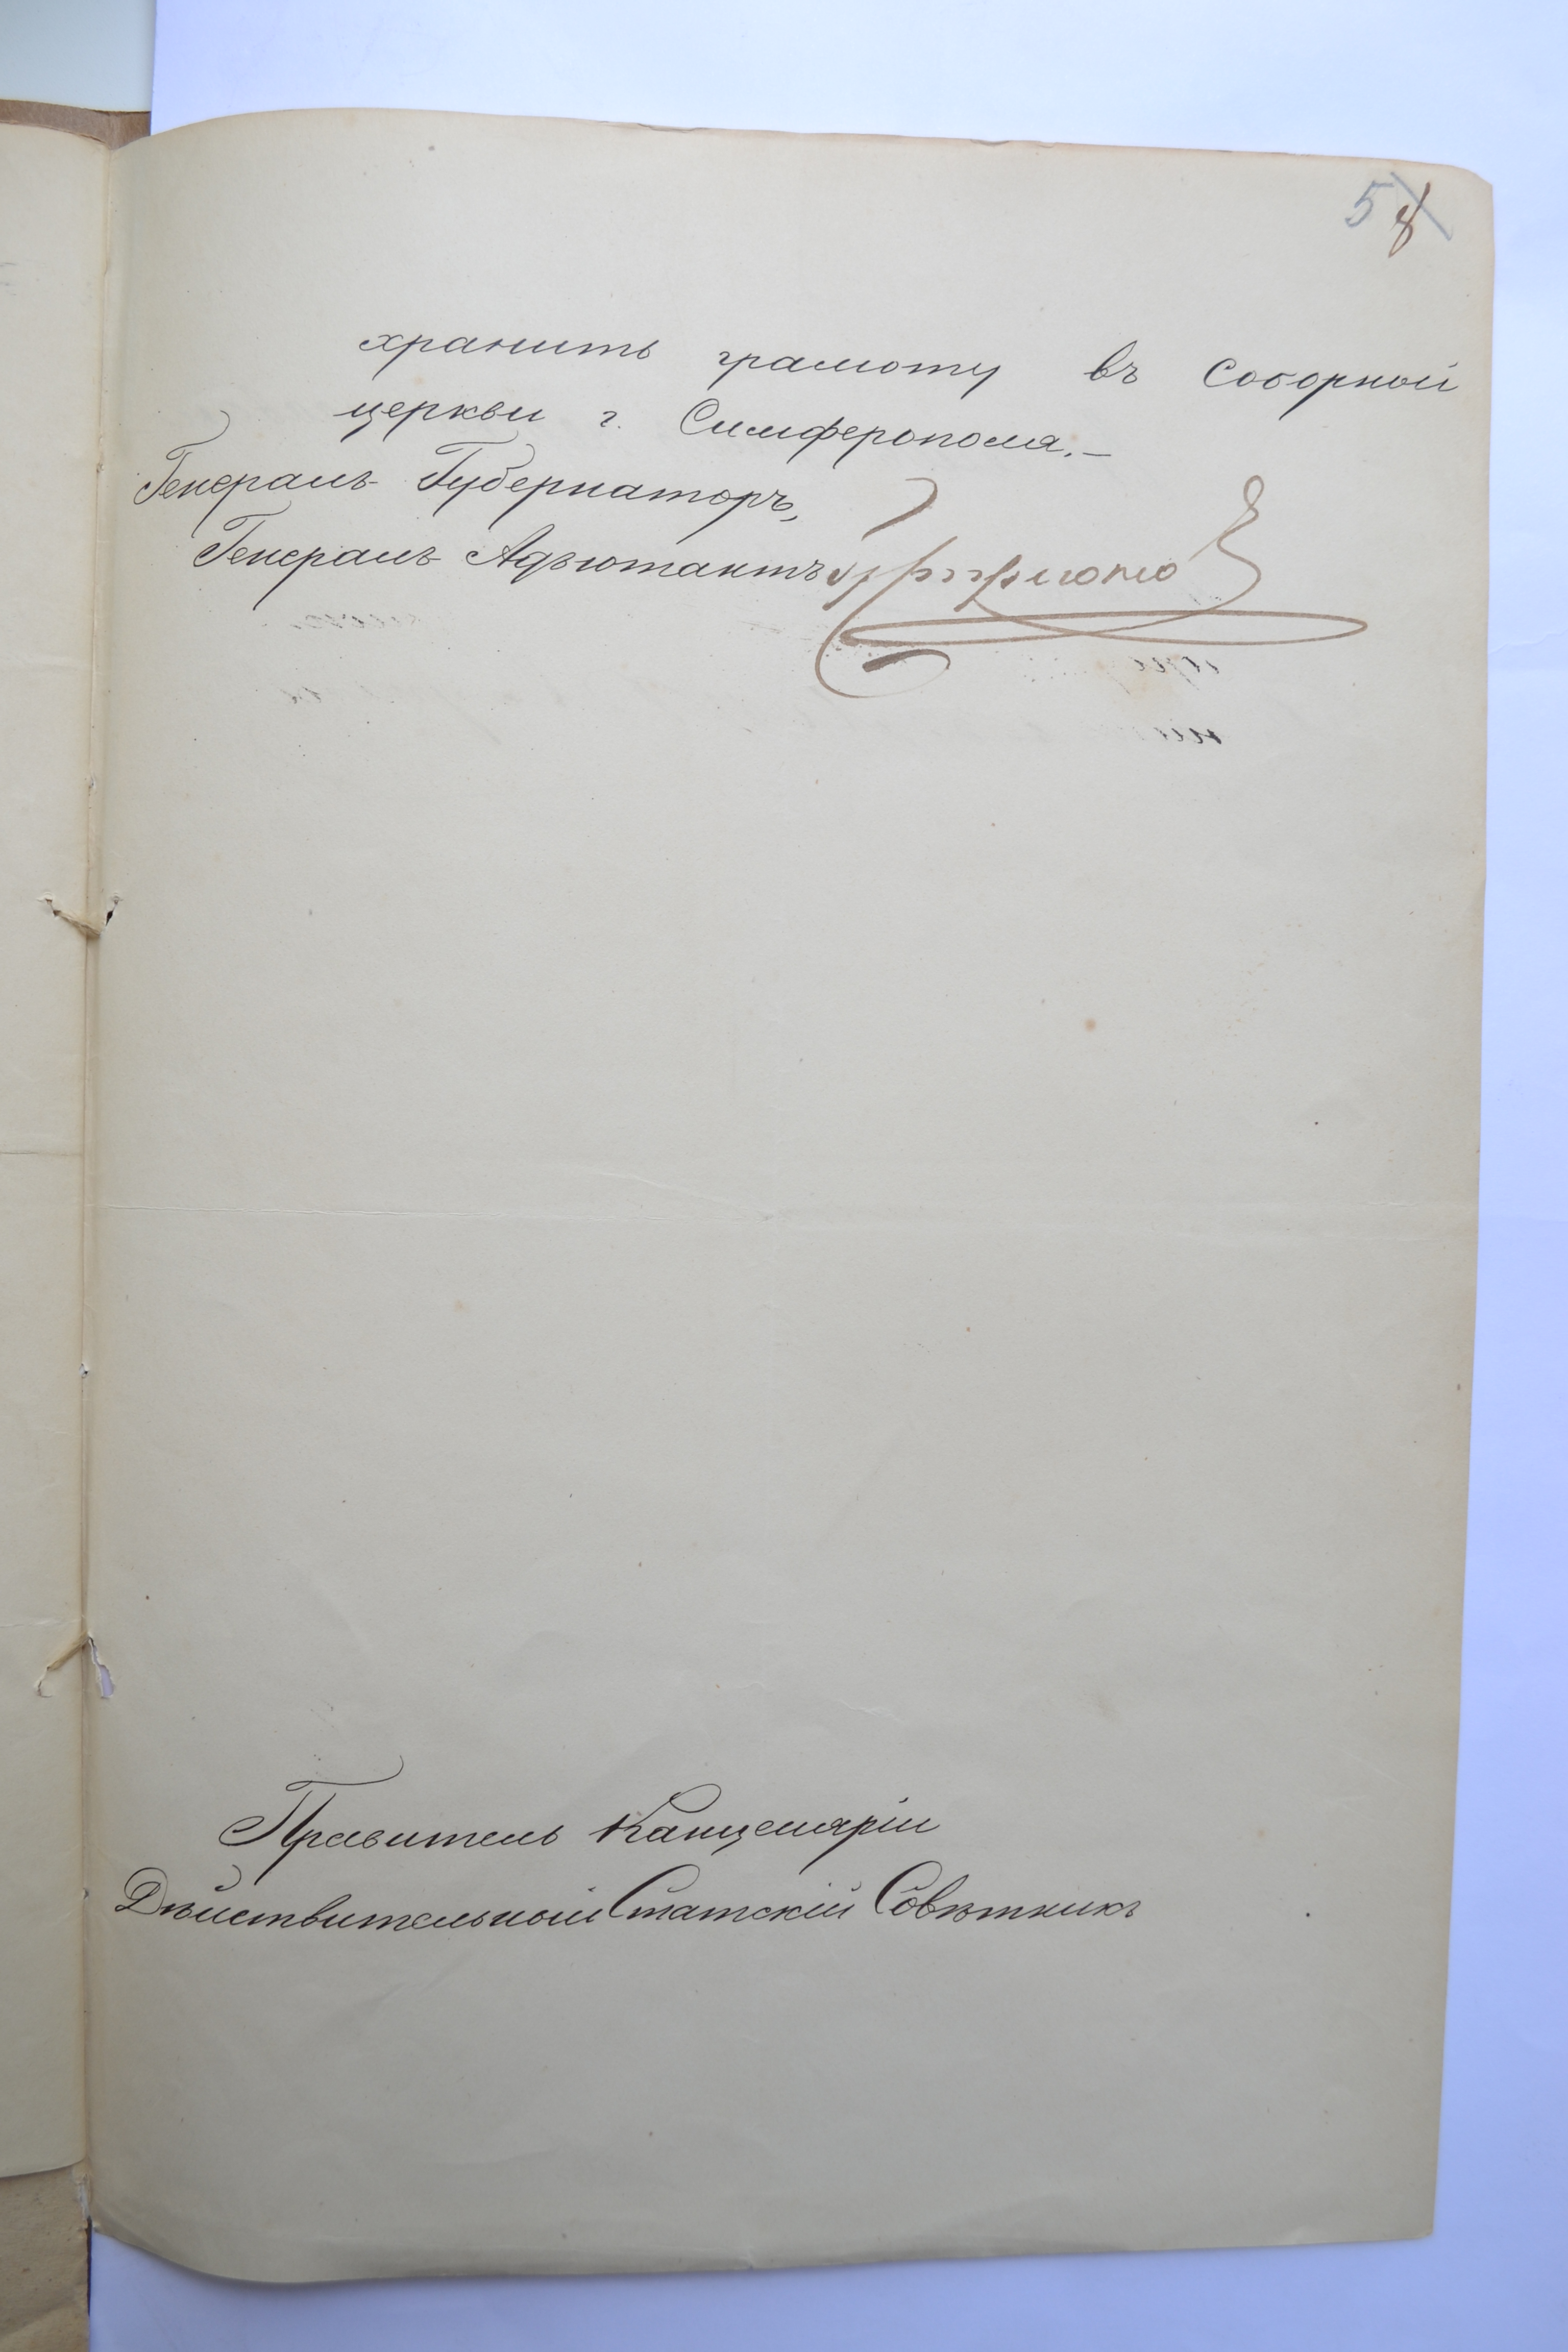 5 8
хранить грамоту въ Соборной
церкви г. Симферополя.–
Генералъ-Губернаторъ,
Генералъ-Адъютантъ
Правитель Канцеляріи
Дѣйствительный Статскій Совѣтникъ